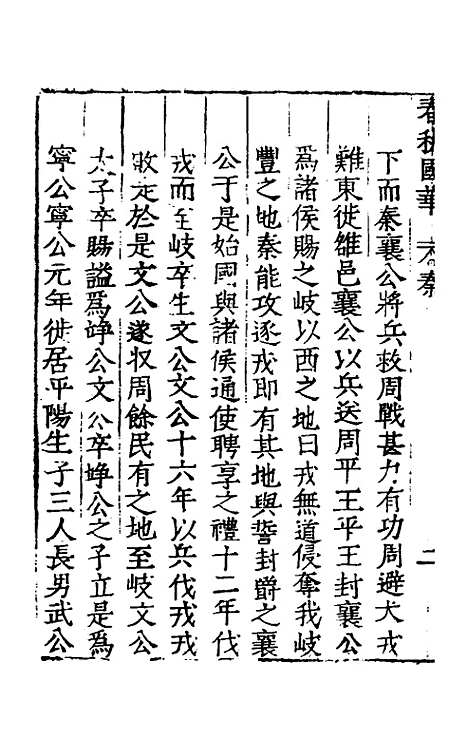 春秋國華 卷秦 二
下而秦襄公將兵救周戰甚力有功周避犬戎
難東徙雒邑襄公以兵送周平王平王封襄公
爲諸侯賜之岐以西之地曰戎無道侵奪我岐
豐之地秦能攻逐戎即有其地與誓封爵之襄
公于是始國與諸侯通使聘享之禮十二年伐
戎而至岐卒生文公文公十六年以兵伐戎戎
敗走於是文公遂収周餘民有之地至岐文公
太子卒賜謚爲竫公文公卒竫公之子立是爲
寧公寧公元年徙居平陽生子三人長男武公